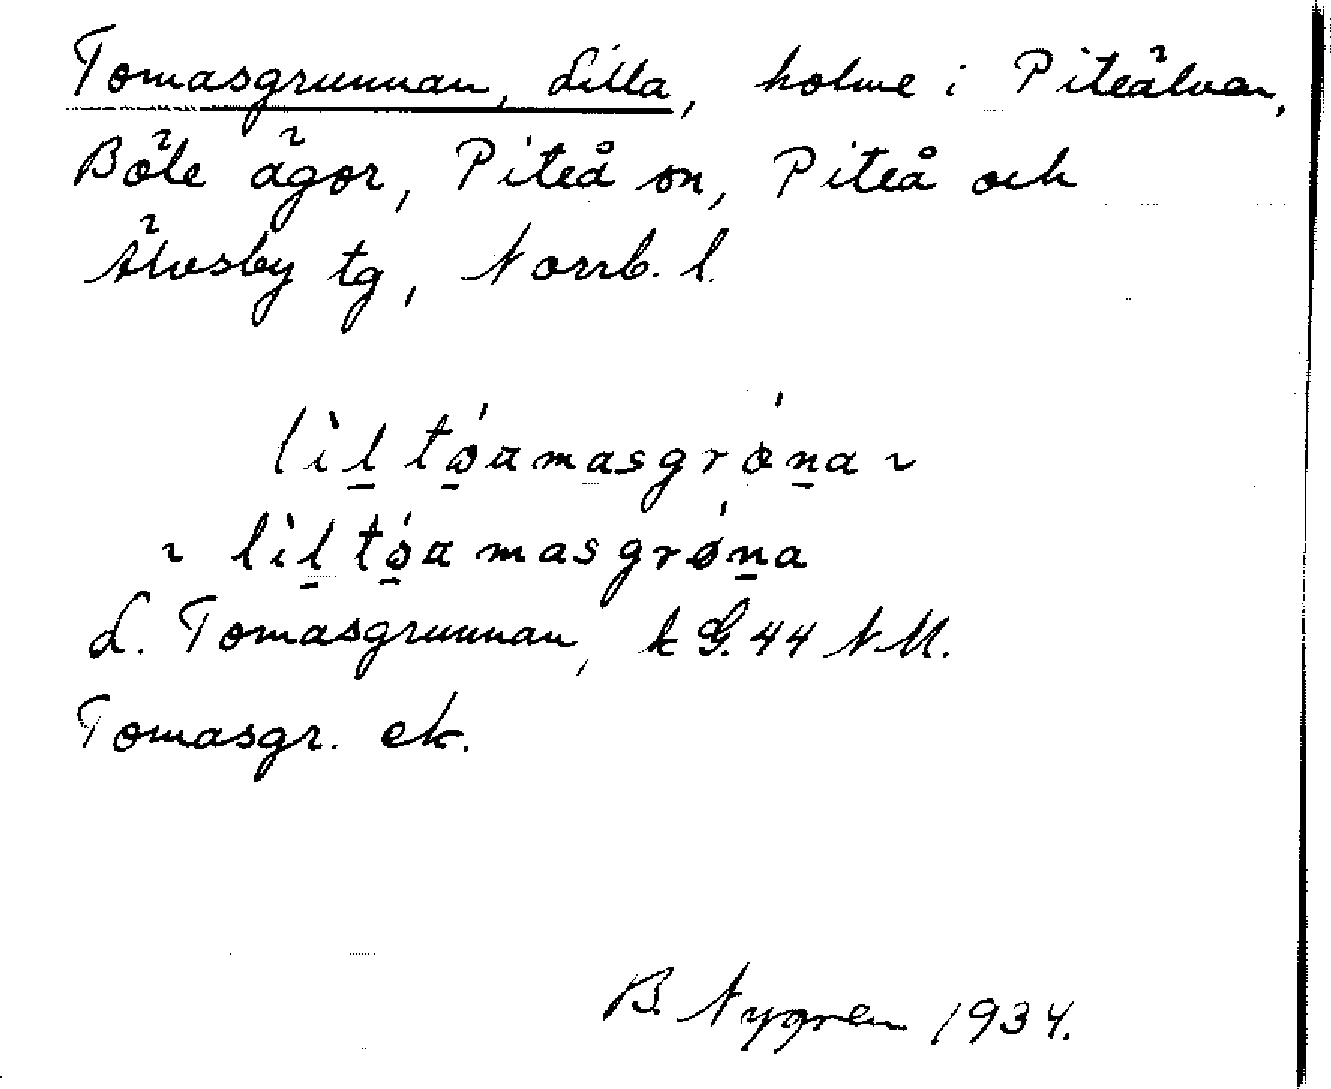 Tomasgrunnan, Lilla, holme i Piteälven,
Böle ägor, Piteå sn, Piteå och
Älvsby tg, Norrb. l.
lìl tóамasgrøna ~
~ lìl tóamasgrøna
L. Tomasgrunnan, k G. 44 NM.
Tomasgr. ek.
B. Nygren 1934.